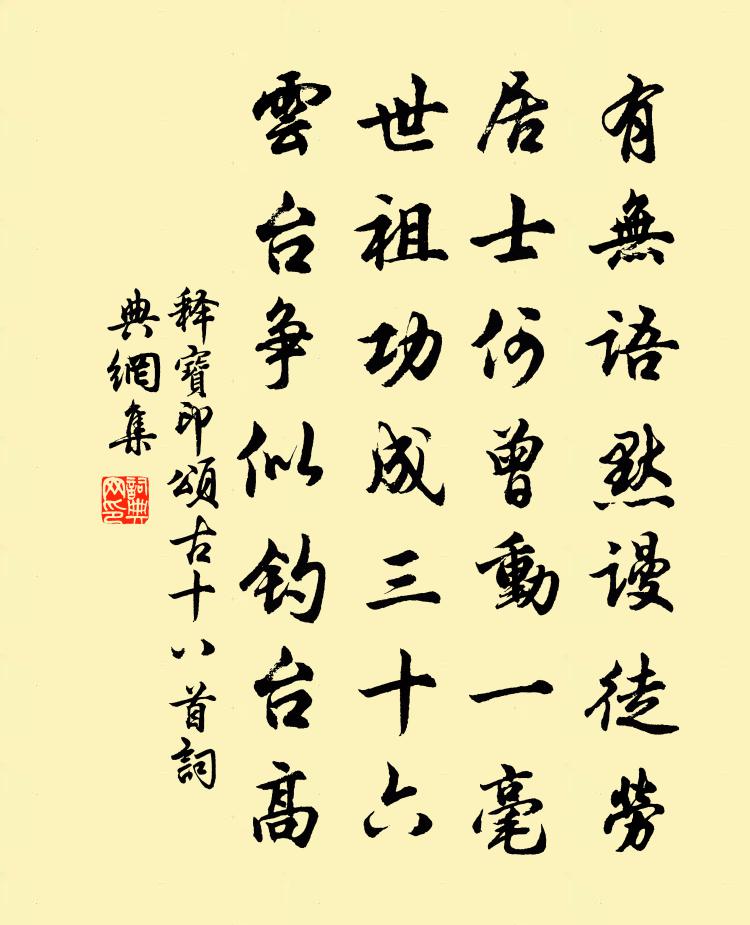 有無語默謾徒勞
居士何曾動一毫
世祖功成三十六
雲台争似钓台高
释寶印頌古十八首詞
典網集
詞典网印